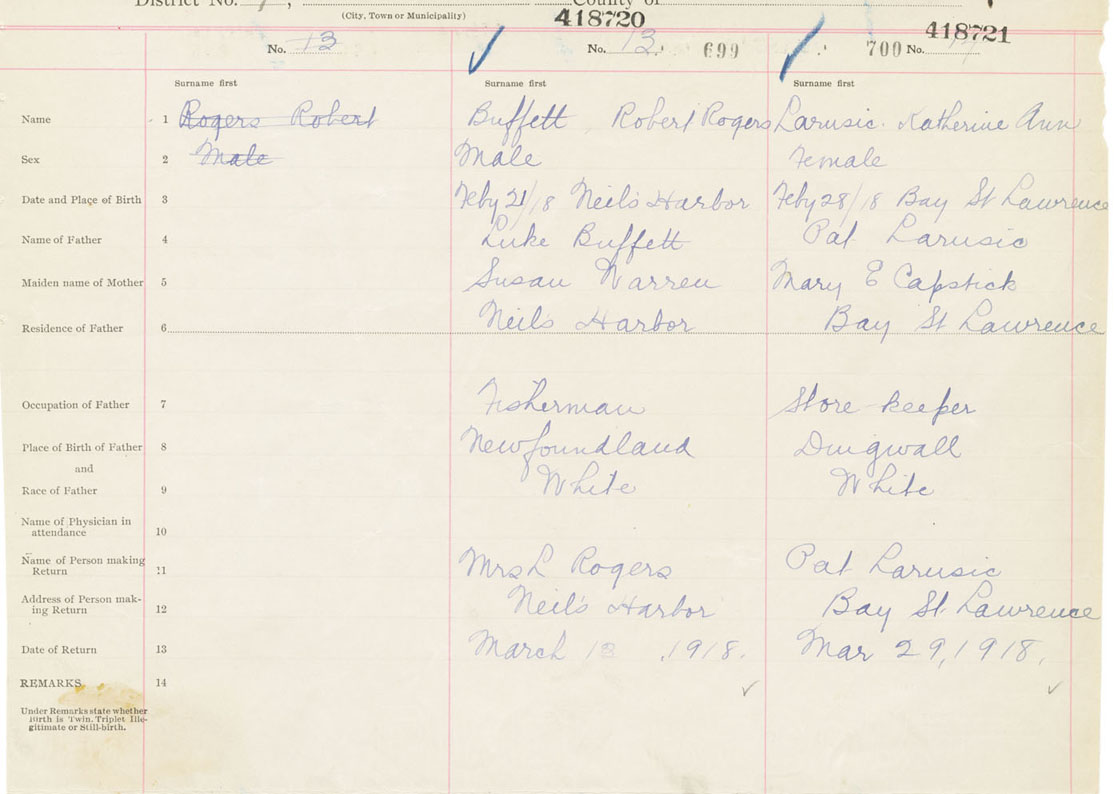 District No. 7, County of
(City, Town or Municipality)
418720
418721
No. 13
No. 13 699
700 No.
Surname first
Surname first
Surname first
Name 1 Rogers Robert Buffett, Robert Rogers Larusic. Katherine Ann
Sex 2 Male Male Female
Date and Place of Birth 3 Feby 21/18 Neil's Harbor Feby 28/18 Bay St Lawrence
Name of Father 4 Luke Buffett Pat Larusic
Maiden name of Mother 5 Susan Warren Mary E Capstick
Residence of Father 6 Neils Harbor Bay St Lawrence
Occupation of Father 7 Fisherman Store keeper
Place of Birth of Father 8 Newfoundland Dingwall
and
Race of Father 9 White White
Name of Physician in
attendance 10
Name of Person making
Return 11 Mrs L Rogers Pat Larusic
Address of Person mak-
ing Return 12 Neil's Harbor Bay St Lawrence
Date of Return 13 March 18, 1918. Mar 29, 1918.
REMARKS. 14
Under Remarks state whether
Birth is Twin, Triplet Ille-
gitimate or Still-birth.